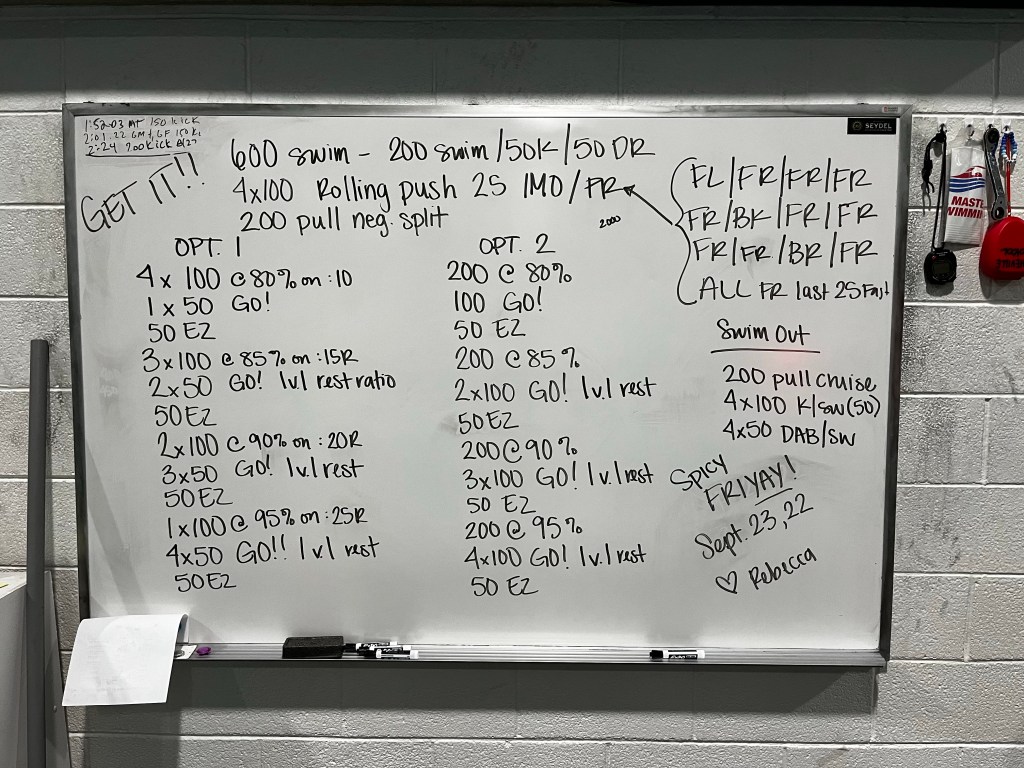 1:52.03 MT 150 KICK
2:24 200 KICK
GET IT!!
600 swim - 200 swim/50K/50 DR
4x100 Rolling push 25 IMO/FR
200 pull neg. split
2000
FL/FR/FR/FR
FR/BK/FR/FR
FR/FR/BR/FR
ALL FR last 25 Fast
OPT. 1
4 x 100 @ 80% on :10
1 x 50 GO!
50 EZ
3x100 @ 85% on :15R
2x50 GO! 1v1 rest ratio
50 EZ
2x100 @ 90% on :20R
3x50 GO! 1v1 rest
50 EZ
1x100 @ 95% on :25R
4x50 GO!! 1v1 rest
50 EZ
OPT. 2
200 @ 80%
100 GO!
50 EZ
200 @ 85%
2x100 GO! 1v.1 rest
50 EZ
200 @ 90%
3x100 GO! 1v.1 rest
50 EZ
200 @ 95%
4x100 GO! 1v.1 rest
50 EZ
Swim Out
200 pull cruise
4x100 K/sw(50)
4x50 DAB/SW
SPICY
FRIYAY!
Sept. 23, 22
♡ Rebecca
SEYDEL